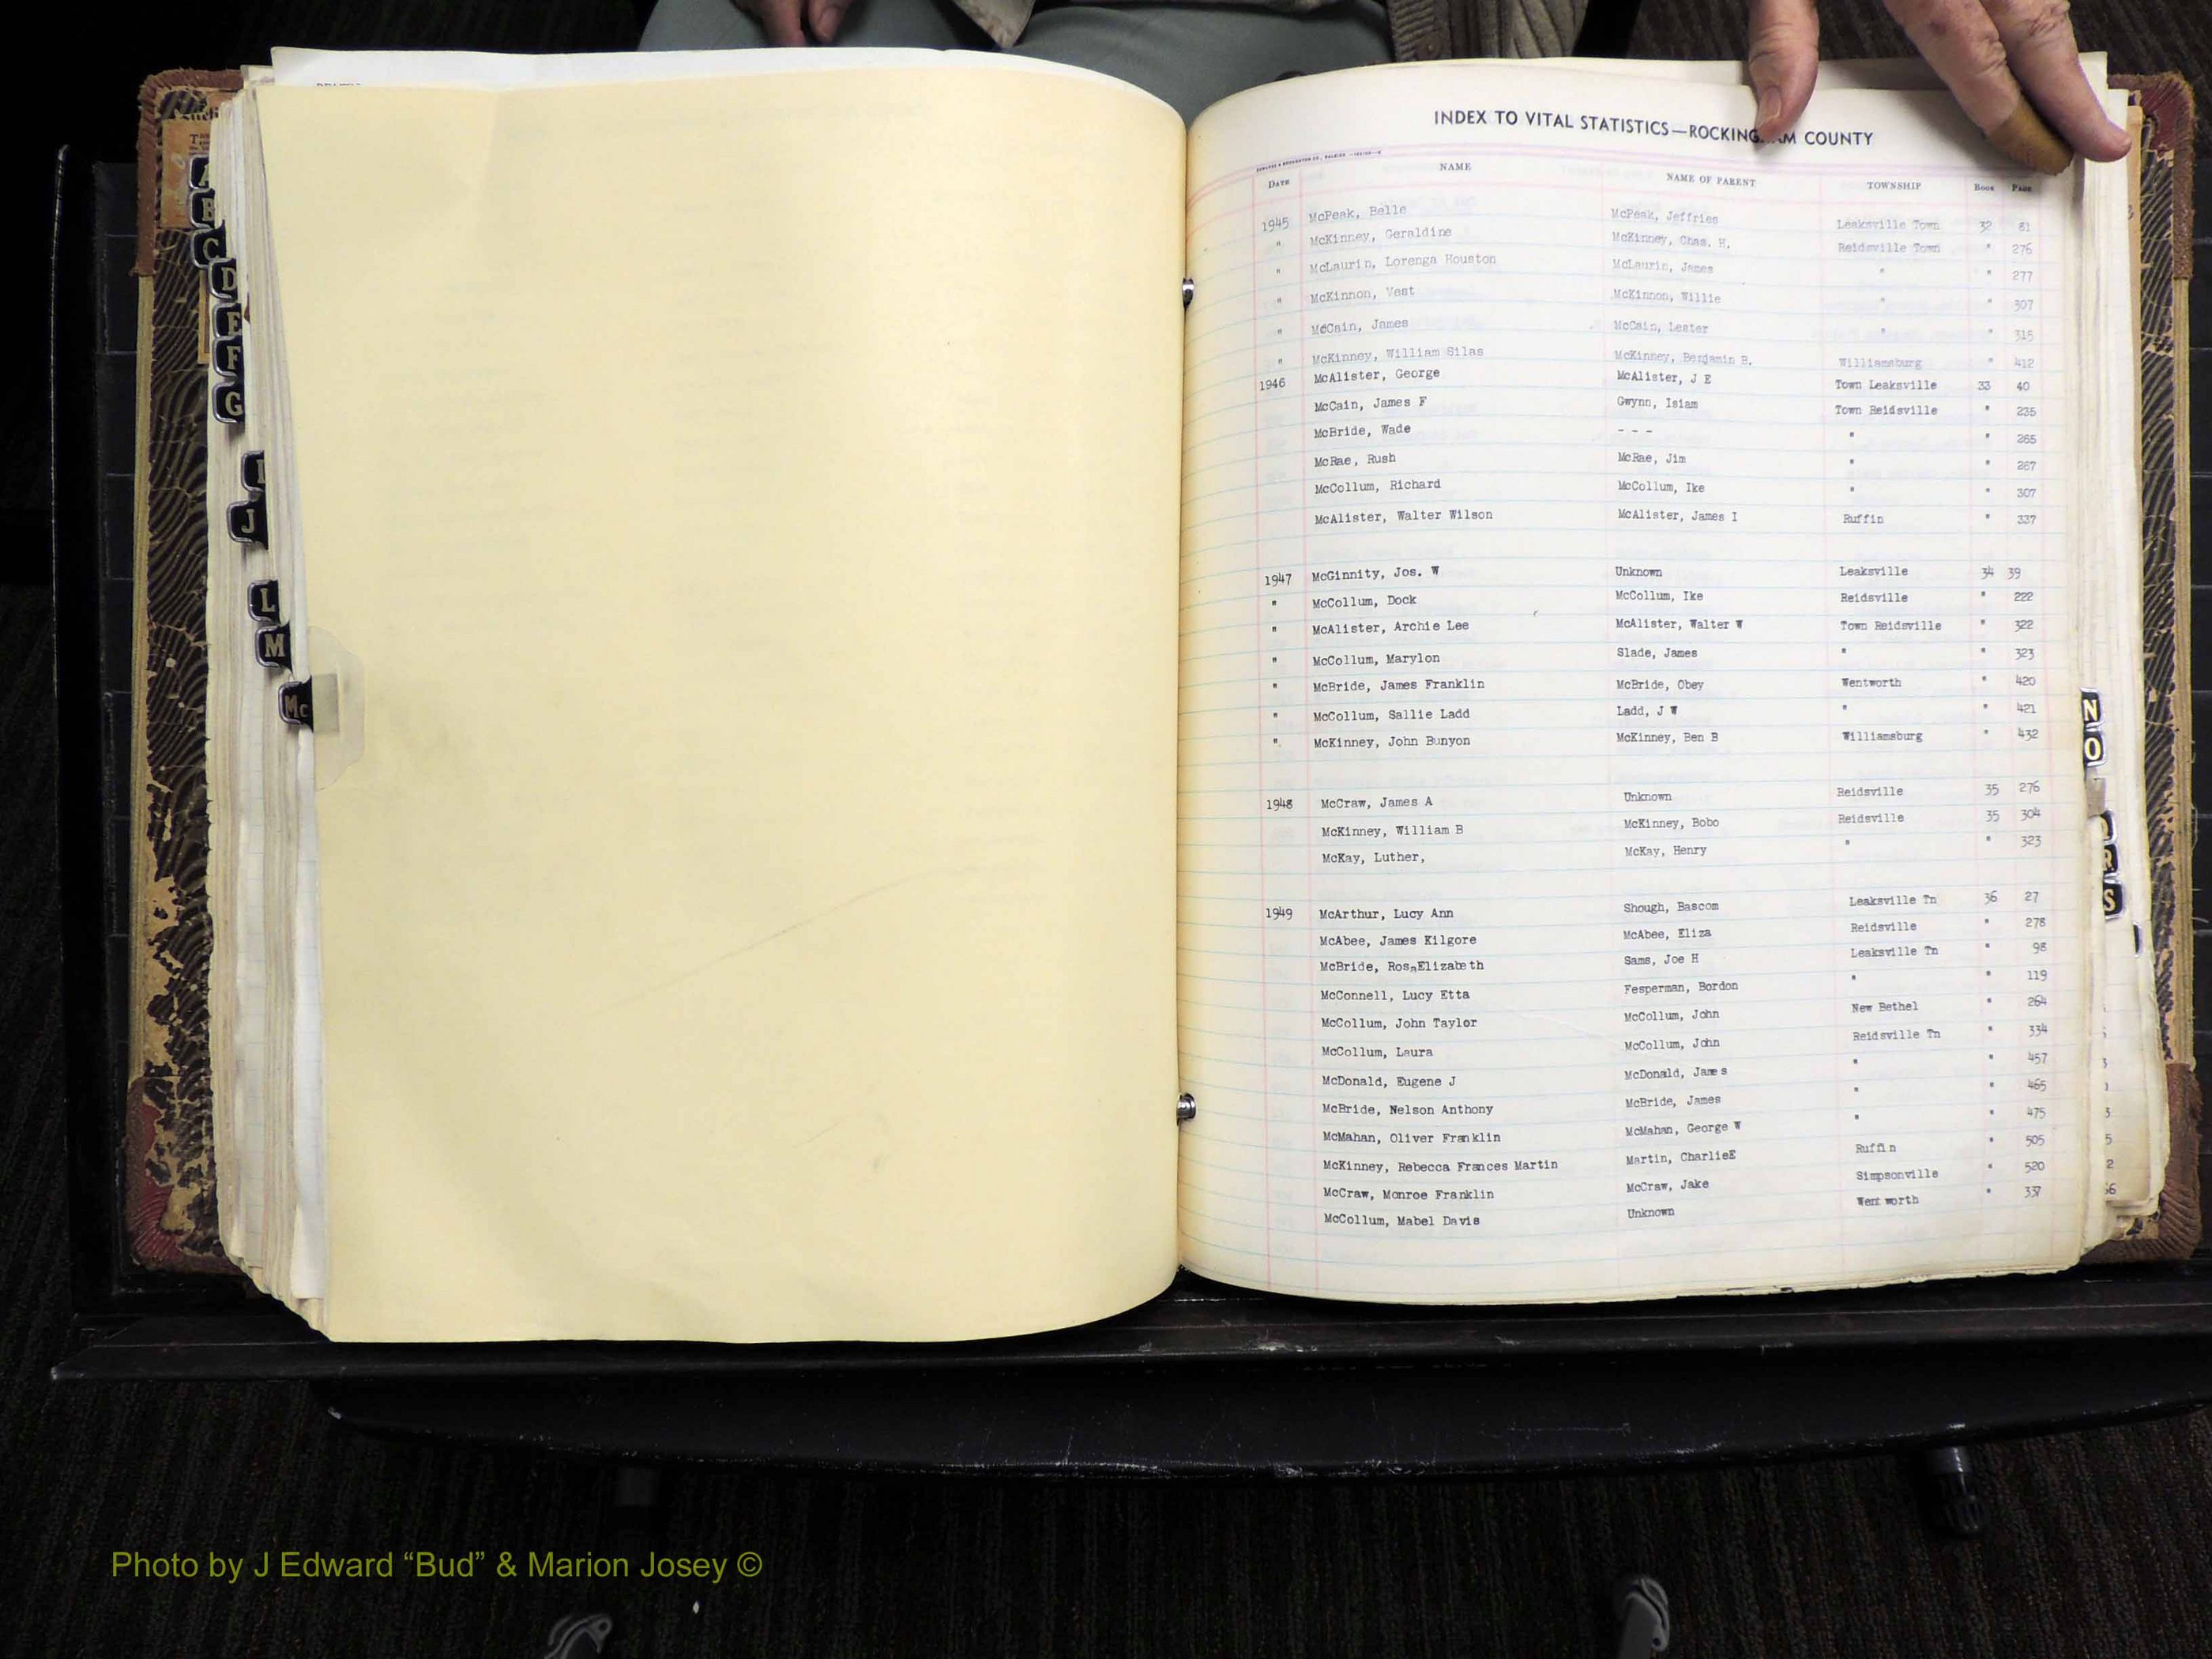 A
B
C
D
E
F
G
I
J
L
M
Mc
INDEX TO VITAL STATISTICS—ROCKING AM COUNTY
DATE NAME NAME OF PARENT TOWNSHIP BOOK PAGE
1945 McPeak, Belle McPeak, Jeffries Leaksville Town 32 81
" McKinney, Geraldine McKinney, Chas. H. Reidsville Town " 276
" McLaurin, Lorenga Houston McLaurin, James " " 277
" McKinnon, Vest McKinnon, Willie " " 307
" McCain, James McCain, Lester " " 315
" McKinney, William Silas McKinney, Benjamin B. Williamsburg " 412
1946 McAlister, George McAlister, J E Town Leaksville 33 40
McCain, James F Gwynn, Isiam Town Reidsville " 235
McBride, Wade - - - " " 265
McRae, Rush McRae, Jim " " 267
McCollum, Richard McCollum, Ike " " 307
McAlister, Walter Wilson McAlister, James I Ruffin " 337
1947 McGinnity, Jos. W Unknown Leaksville 34 39
" McCollum, Dock McCollum, Ike Reidsville " 222
" McAlister, Archie Lee McAlister, Walter W Town Reidsville " 322
" McCollum, Marylon Slade, James " " 323
" McBride, James Franklin McBride, Obey Wentworth " 420
" McCollum, Sallie Ladd Ladd, J W " " 421
" McKinney, John Bunyon McKinney, Ben B Williamsburg " 432
1948 McCraw, James A Unknown Reidsville 35 276
McKinney, William B McKinney, Bobo Reidsville 35 304
McKay, Luther, McKay, Henry " " 323
1949 McArthur, Lucy Ann Shough, Bascom Leaksville Tn 36 27
McAbee, James Kilgore McAbee, Eliza Reidsville " 278
McBride, Rosa Elizabeth Sams, Joe H Leaksville Tn " 98
McConnell, Lucy Etta Fesperman, Bordon " " 119
McCollum, John Taylor McCollum, John New Bethel " 264
McCollum, Laura McCollum, John Reidsville Tn " 334
McDonald, Eugene J McDonald, James " " 457
McBride, Nelson Anthony McBride, James " " 465
McMahan, Oliver Franklin McMahan, George W " " 475
McKinney, Rebecca Frances Martin Martin, CharlieE Ruffin " 505
McCraw, Monroe Franklin McCraw, Jake Simpsonville " 520
McCollum, Mabel Davis Unknown Wentworth " 337
N
O
R
S
Photo by J Edward “Bud” & Marion Josey ©